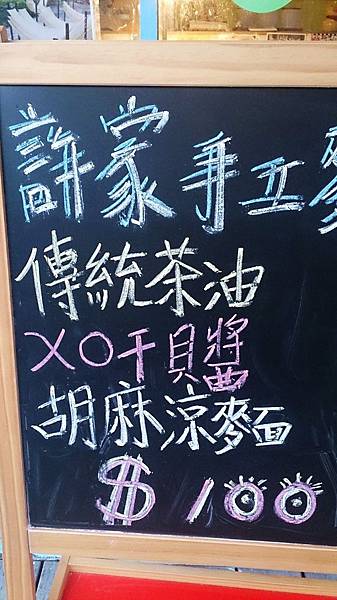 許家手工麵
傳統茶油
XO干貝醬
胡麻涼麵
$100